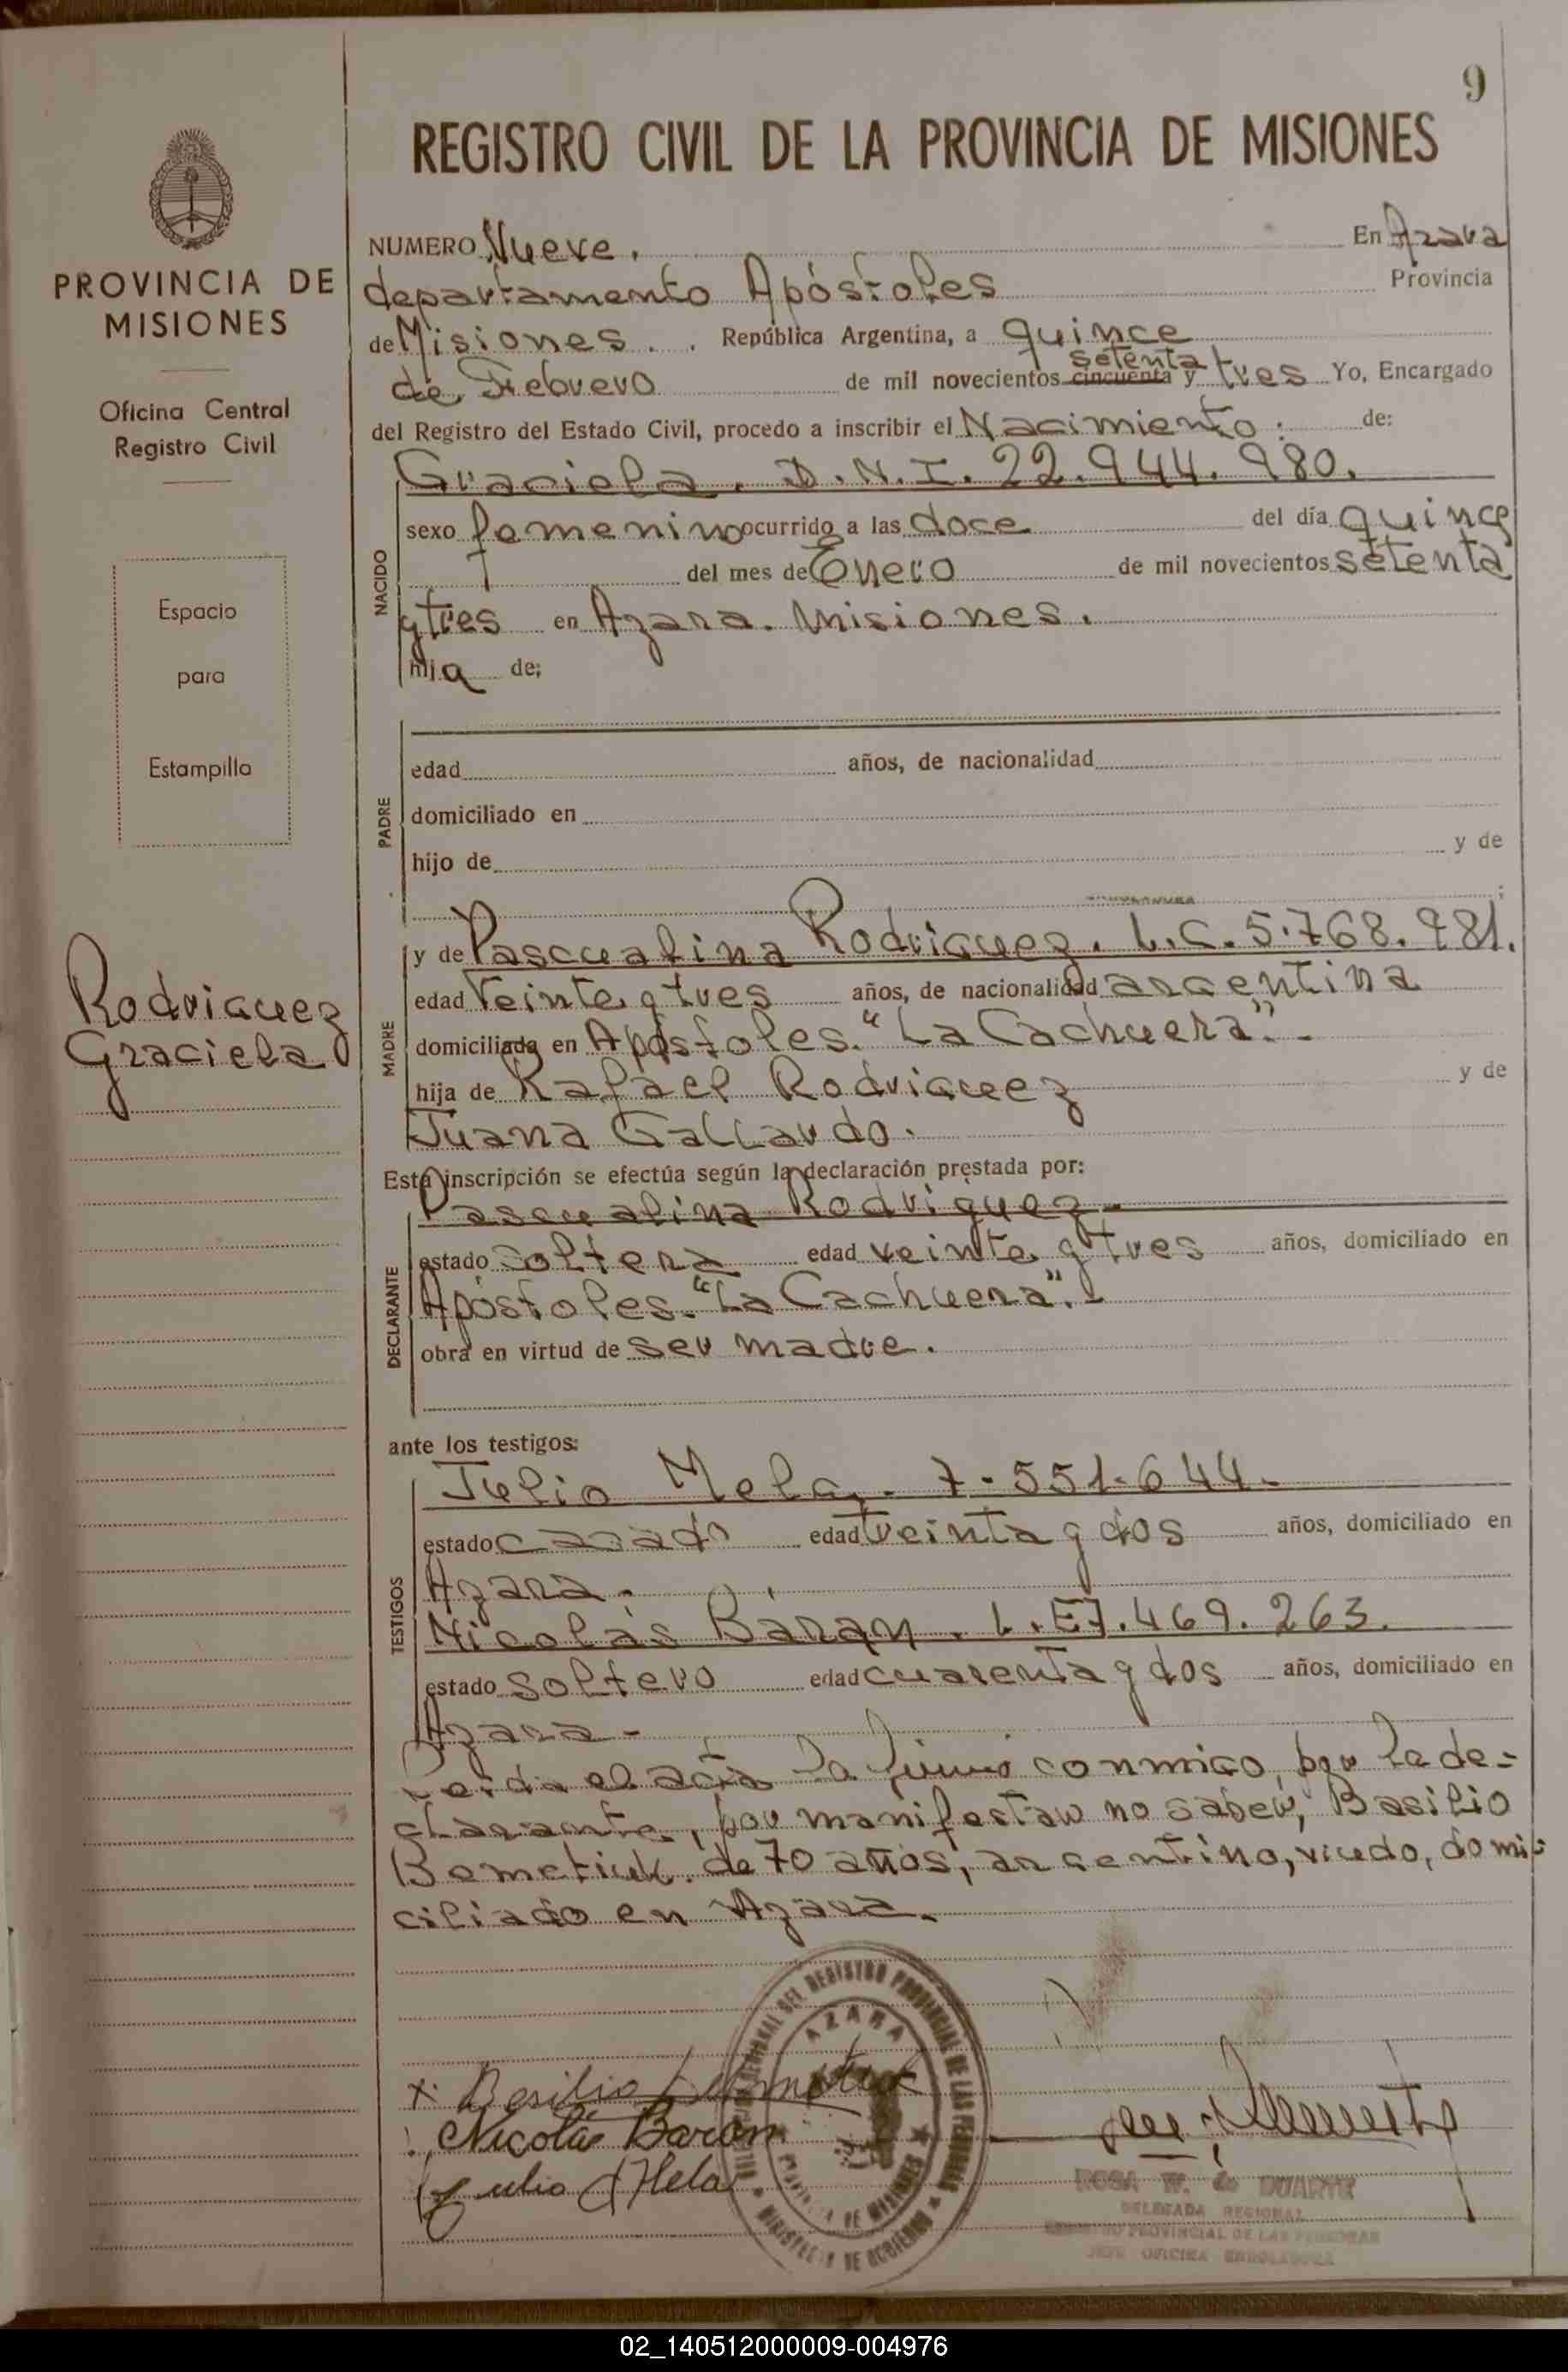 9
REGISTRO CIVIL DE LA PROVINCIA DE MISIONES
PROVINCIA DE
MISIONES
Oficina Central
Registro Civil
Espacio
para
Estampilla
Rodriguez
Graciela
NUMERO Nueve. En Azara
departamento Apóstoles Provincia
de Misiones. . República Argentina, a quince
setenta
de Febrero de mil novecientos cincuenta y tres Yo, Encargado
del Registro del Estado Civil, procedo a inscribir el Nacimiento. de:
Graciela. D.N.I. 22.944.980.
NACIDO
sexo femenino ocurrido a las doce del día quince
del mes de Enero de mil novecientos setenta
y tres en Azara. Misiones.
hija de;
PADRE
edad años, de nacionalidad
domiciliado en
hijo de y de
;
MADRE
y de Pascualina Rodriguez. L.C. 5.768.981.
edad veinte y tres años, de nacionalidad argentina
domiciliada en Apóstoles. "La Cachuera".-
hija de Rafael Rodriguez y de
Juana Gallardo.
Esta inscripción se efectúa según la declaración prestada por:
DECLARANTE
Pascualina Rodriguez.-
estado soltera edad veinte y tres años, domiciliado en
Apóstoles. "La Cachuera".-
obra en virtud de ser madre.
ante los testigos:
TESTIGOS
Julio Mela. 7.551.644.
estado casado edad treinta y dos años, domiciliado en
Azara.
Nicolás Barán. L.E 7.469.263.
estado soltero edad cuarenta y dos años, domiciliado en
Azara.-
Leida el acta la firmó conmigo, por la de-
clarante, por manifestar no saber, Basilio
de 70 años, argentino, viudo, domi-
ciliado en Azara.
x Basilio
Nicolás Baran
Julio Mela
DEL REGISTRO PROVINCIAL DE LAS PERSONAS
AZARA
PROVINCIA DE MISIONES
MINISTERIO DE GOBIERNO
ROSA W. de DUARTE
DELEGADA REGIONAL
REGISTRO PROVINCIAL DE LAS PERSONAS
JEFE OFICINA ENROLADORA
02_140512000009-004976